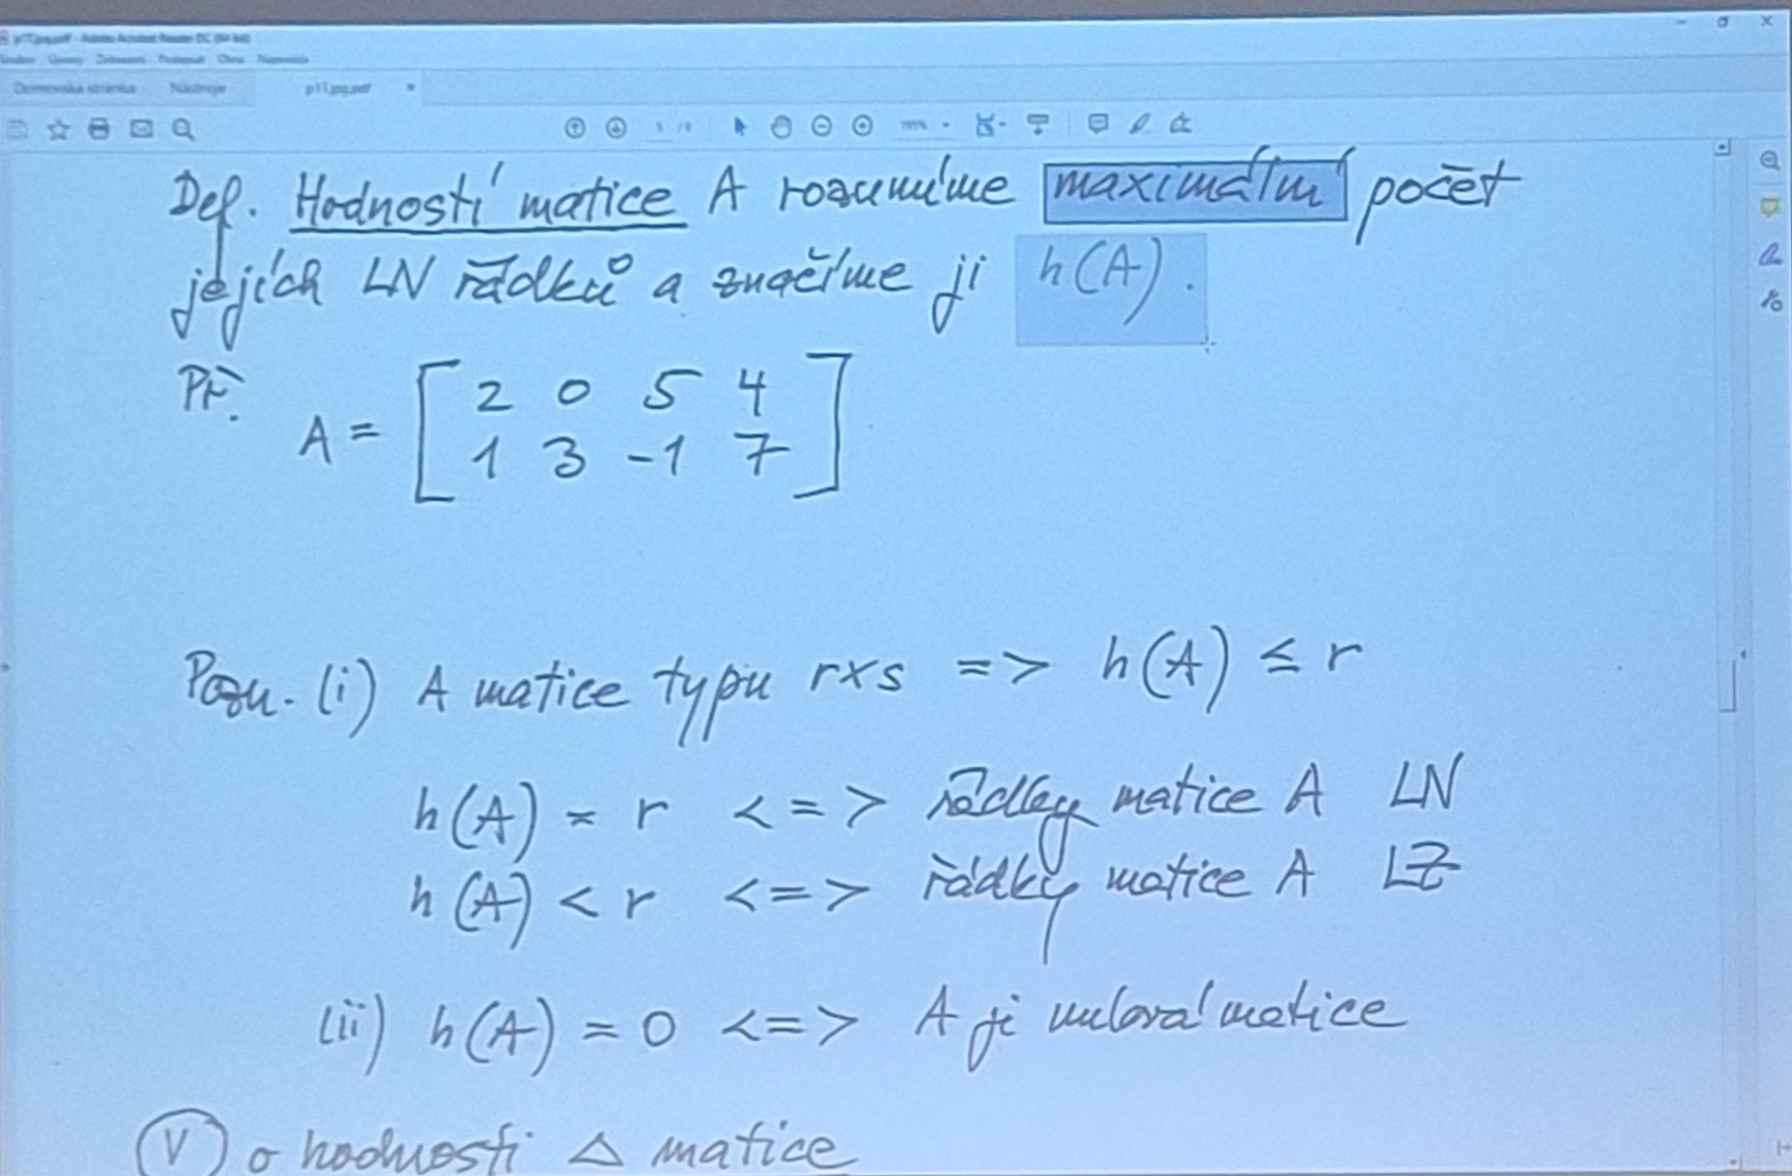 p11.jpg.pdf - Adobe Acrobat Reader DC (64-bit)
Domovská stránka Nástroje p11.jpg.pdf
Def. Hodností matice A rozumíme maximální počet
jejích LN řádků a značíme ji h(A).
Př.
A = [ 2 0 5 4
1 3 -1 7 ]
Pozn. (i) A matice typu r×s => h(A) ≤ r
h(A) = r <=> řádky matice A LN
h(A) < r <=> řádky matice A LZ
(ii) h(A) = 0 <=> A je nulová matice
V o hodnosti △ matice